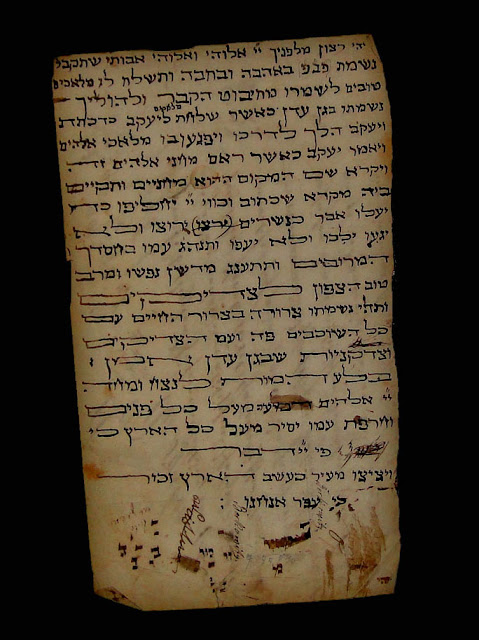 יהי רצון מלפניך יי אלוהי ואלוהי אבותי שתקבל
נשמת פבפ באהבה ובחבה ותשלח לו מלאכים
טובים לשמרו מחיבוט הקבר ולהוליך
נשמתו בגן עדן כאשר שלחת מלאכים ליעקב כדכתי
ויעקב הלך לדרכו ויפגעו בו מלאכי אלהים
ויאמר יעקב כאשר ראם מחנה אלהים זה
ויקרא שם המקום ההוא מחנים ותקיים
ביה מקרא שכתוב וקווי יי יחליפו כח
יעלו אבר כנשרים (ירצו) ירוצו ולא
יגעו ילכו ולא יעפו ותנהג עמו בחסדך
המרובים ותתענג מדשן נפשו ומרב
טוב הצפון לצדיקים
ותהי נשמתו צרורה בצרור החיים עם
כל השוכבים פה ועם הצדיקים
וצדקניות שבגן עדן אמן
בלע המות לנצח ומחה
יי אלהים דמעה מעל כל פנים
וחרפת עמו יסיר מעל כל הארץ כי
כי יי דבר
ויציצו מעיר כעשב הארץ זכור
כי עפר אנחנו :